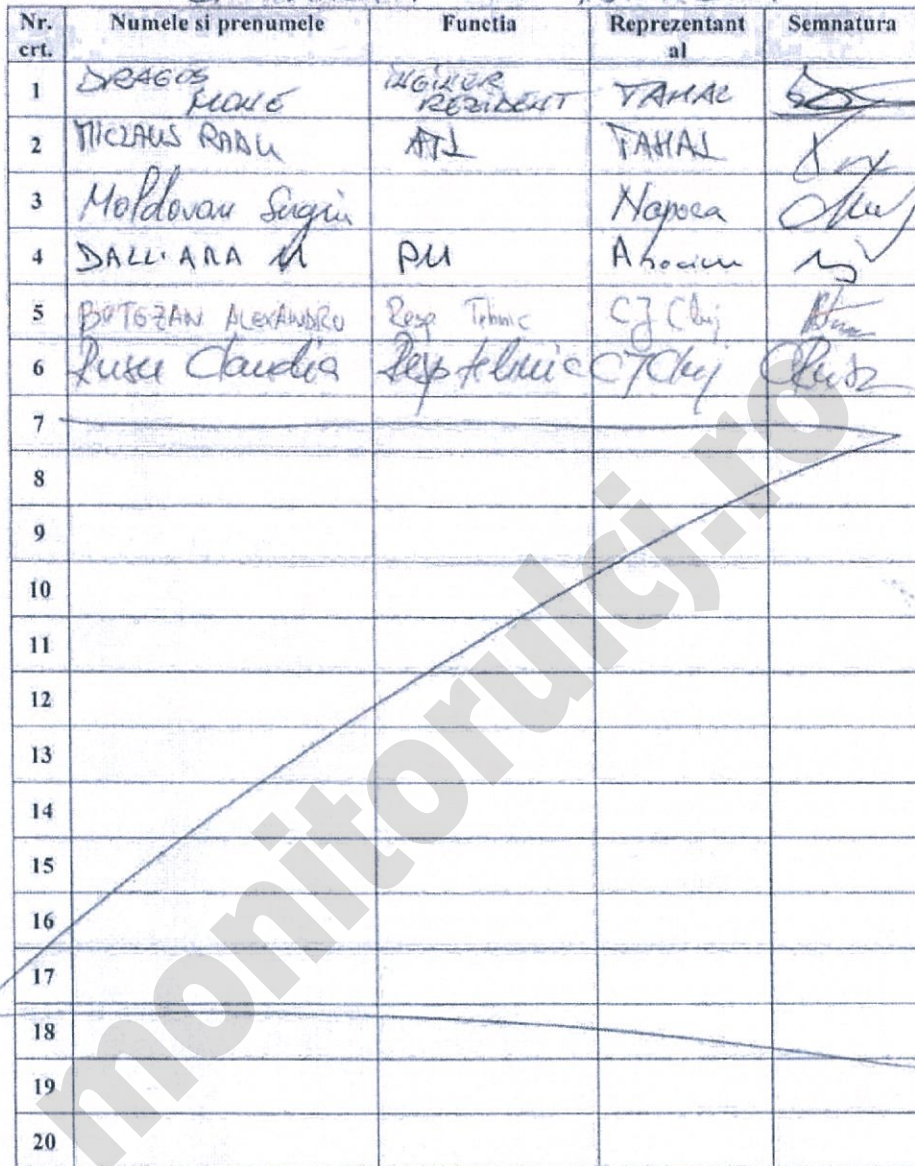 Nr. crt. Numele si prenumele Functia Reprezentant al Semnatura
1 DRAGOS MONE INGINER REZIDENT TAHAL
2 MICLAUS RADU ATL TAHAL
3 Moldovan Sergiu Napoca
4 DALL'ARA M PM Asocium
5 BOTEZAN ALEXANDRU Resp Tehnic CJ Cluj
6 Rusu Claudia Resp tehnic CJ Cluj
7
8
9
10
11
12
13
14
15
16
17
18
19
20
monitorulcj.ro